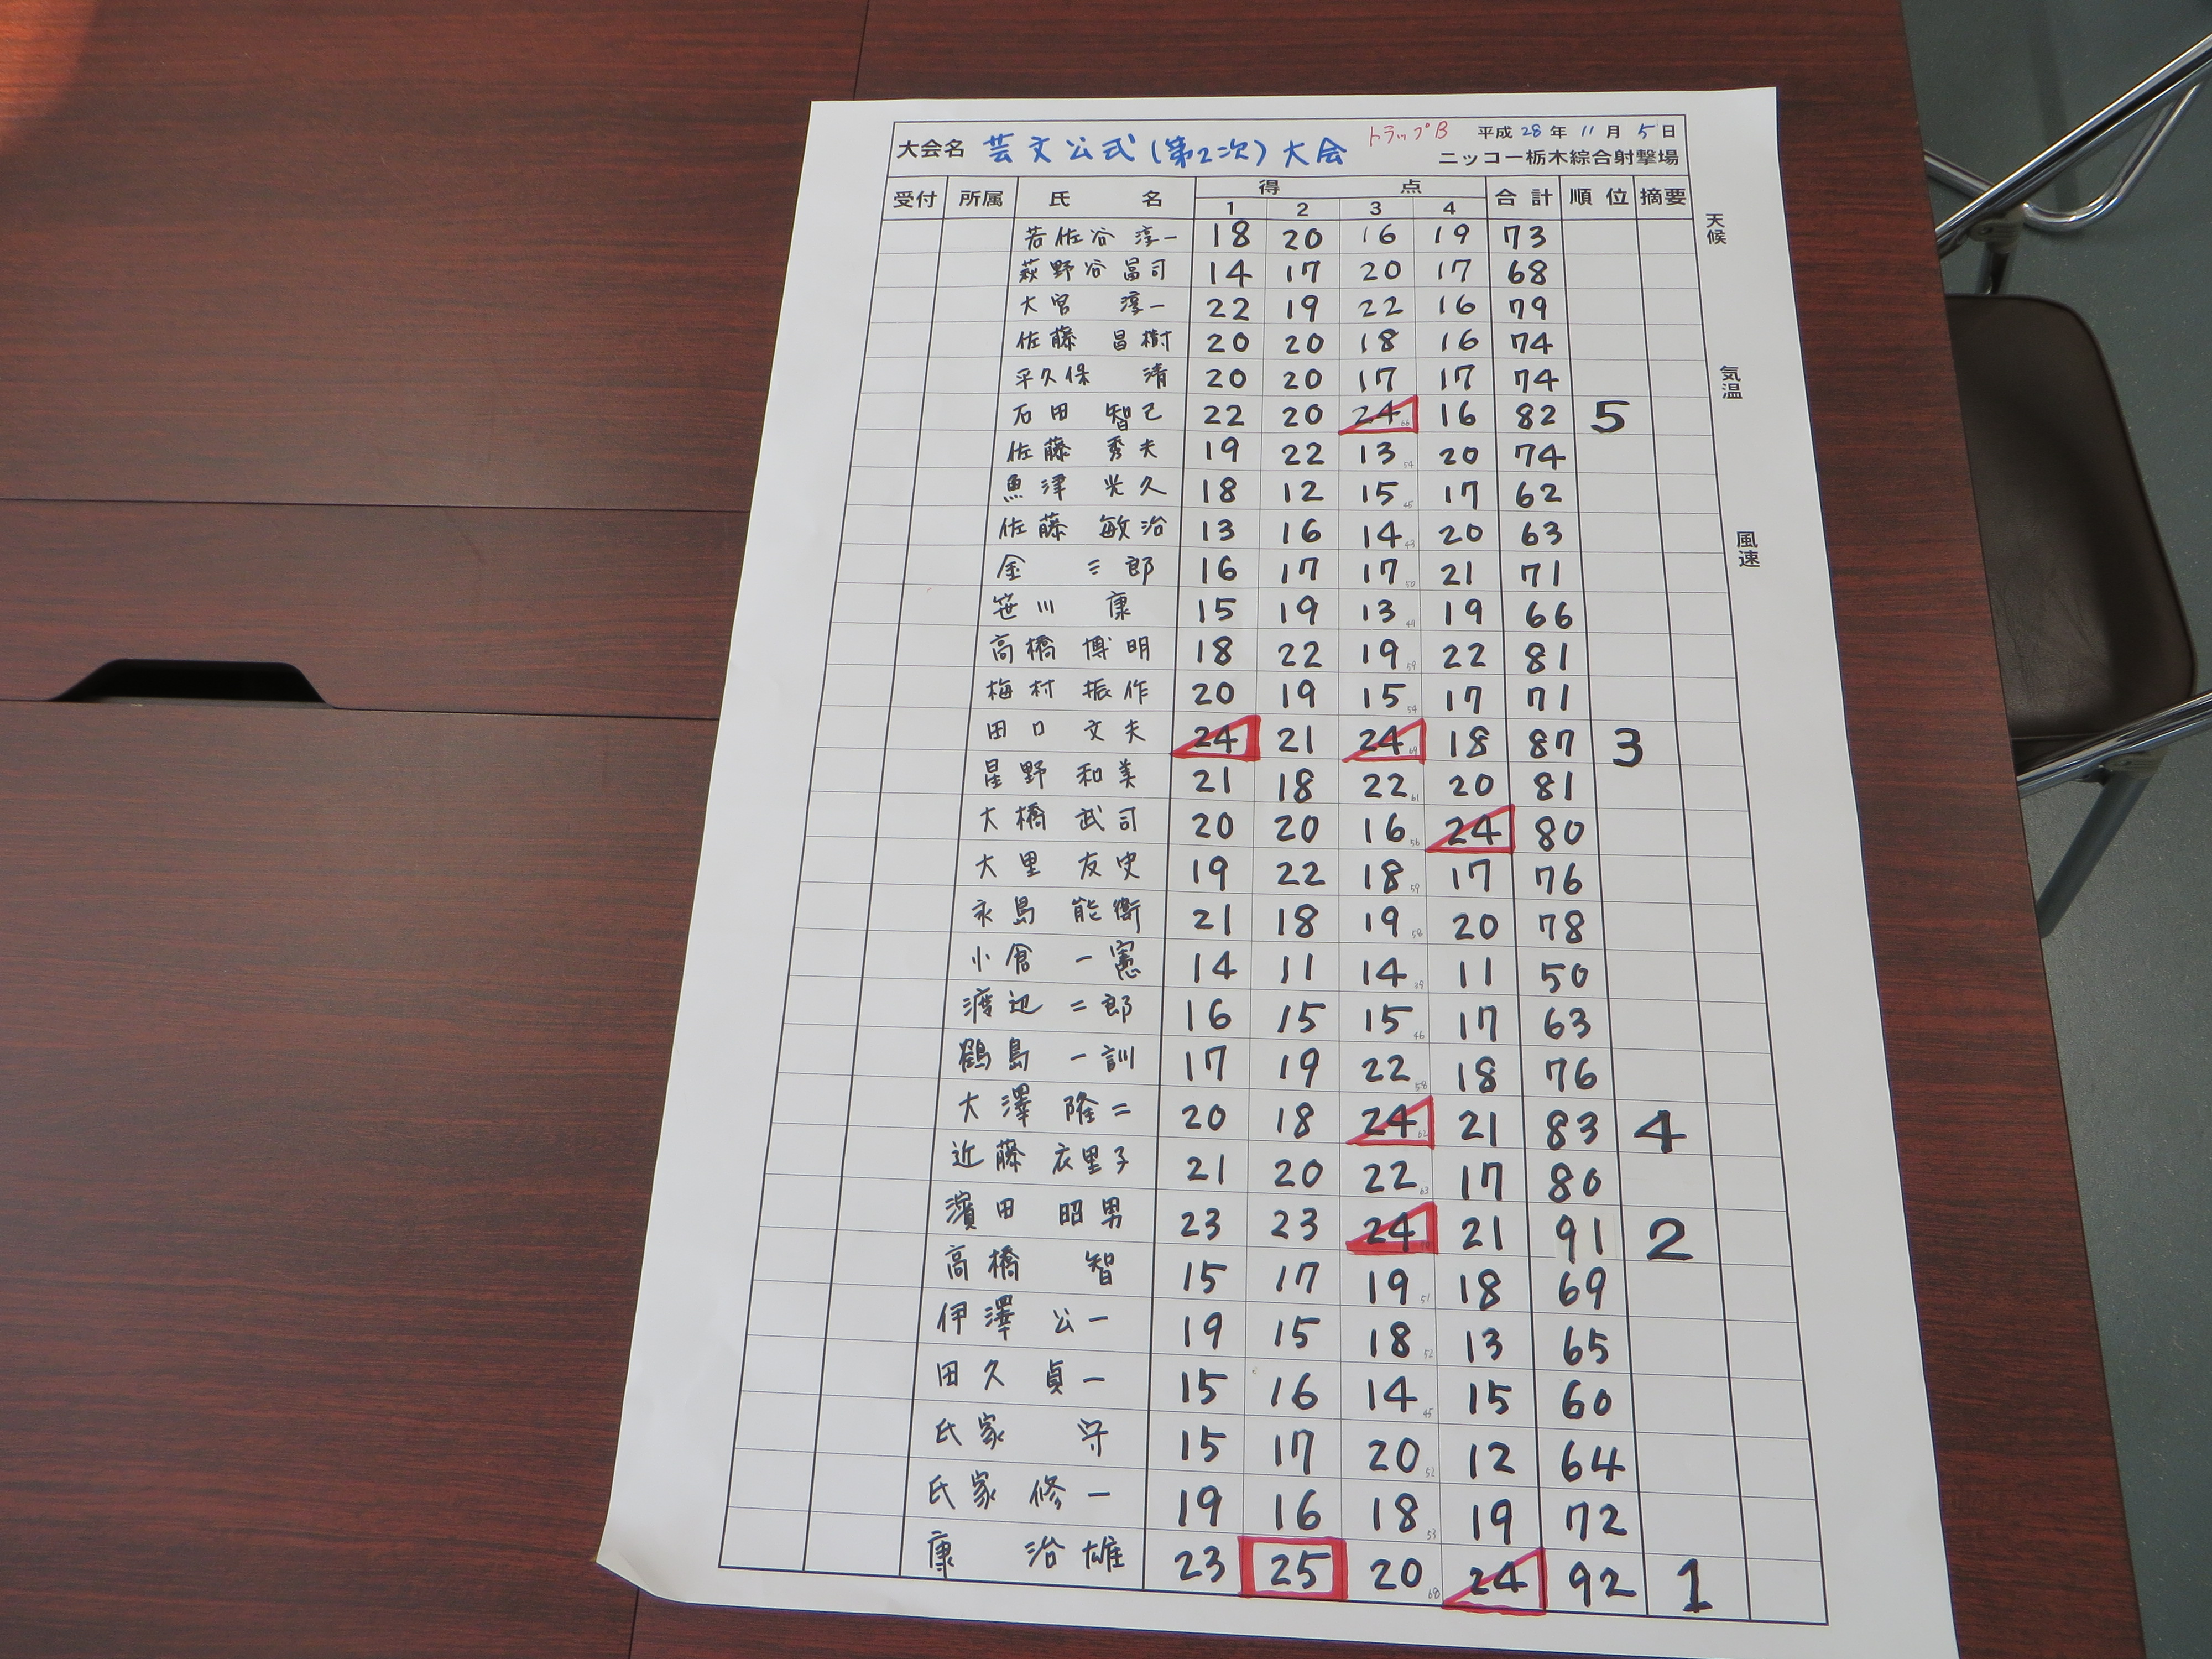 トラップB 平成28年11月5日
大会名 芸文公式(第2次)大会 ニッコー栃木綜合射撃場
受付 所属 氏名 得点 合計 順位 摘要
1 2 3 4
天候
気温
風速
若佐谷 淳一 18 20 16 19 73
萩野谷 昌司 14 17 20 17 68
大宮 淳一 22 19 22 16 79
佐藤 昌樹 20 20 18 16 74
平久保 清 20 20 17 17 74
石田 智己 22 20 24 16 82 5
佐藤 秀夫 19 22 13 20 74
魚津 光久 18 12 15 17 62
佐藤 敏治 13 16 14 20 63
金 三郎 16 17 17 21 71
笹川 康 15 19 13 19 66
高橋 博明 18 22 19 22 81
梅村 振作 20 19 15 17 71
田口 文夫 24 21 24 18 87 3
星野 和美 21 18 22 20 81
大橋 武司 20 20 16 24 80
大里 友史 19 22 18 17 76
永島 能衛 21 18 19 20 78
小倉 一憲 14 11 14 11 50
渡辺 二郎 16 15 15 17 63
鶴島 一訓 17 19 22 18 76
大澤 隆二 20 18 24 21 83 4
近藤 衣里子 21 20 22 17 80
濱田 昭男 23 23 24 21 91 2
高橋 智 15 17 19 18 69
伊澤 公一 19 15 18 13 65
田久 貞一 15 16 14 15 60
氏家 守 15 17 20 12 64
氏家 修一 19 16 18 19 72
康 治雄 23 25 20 24 92 1